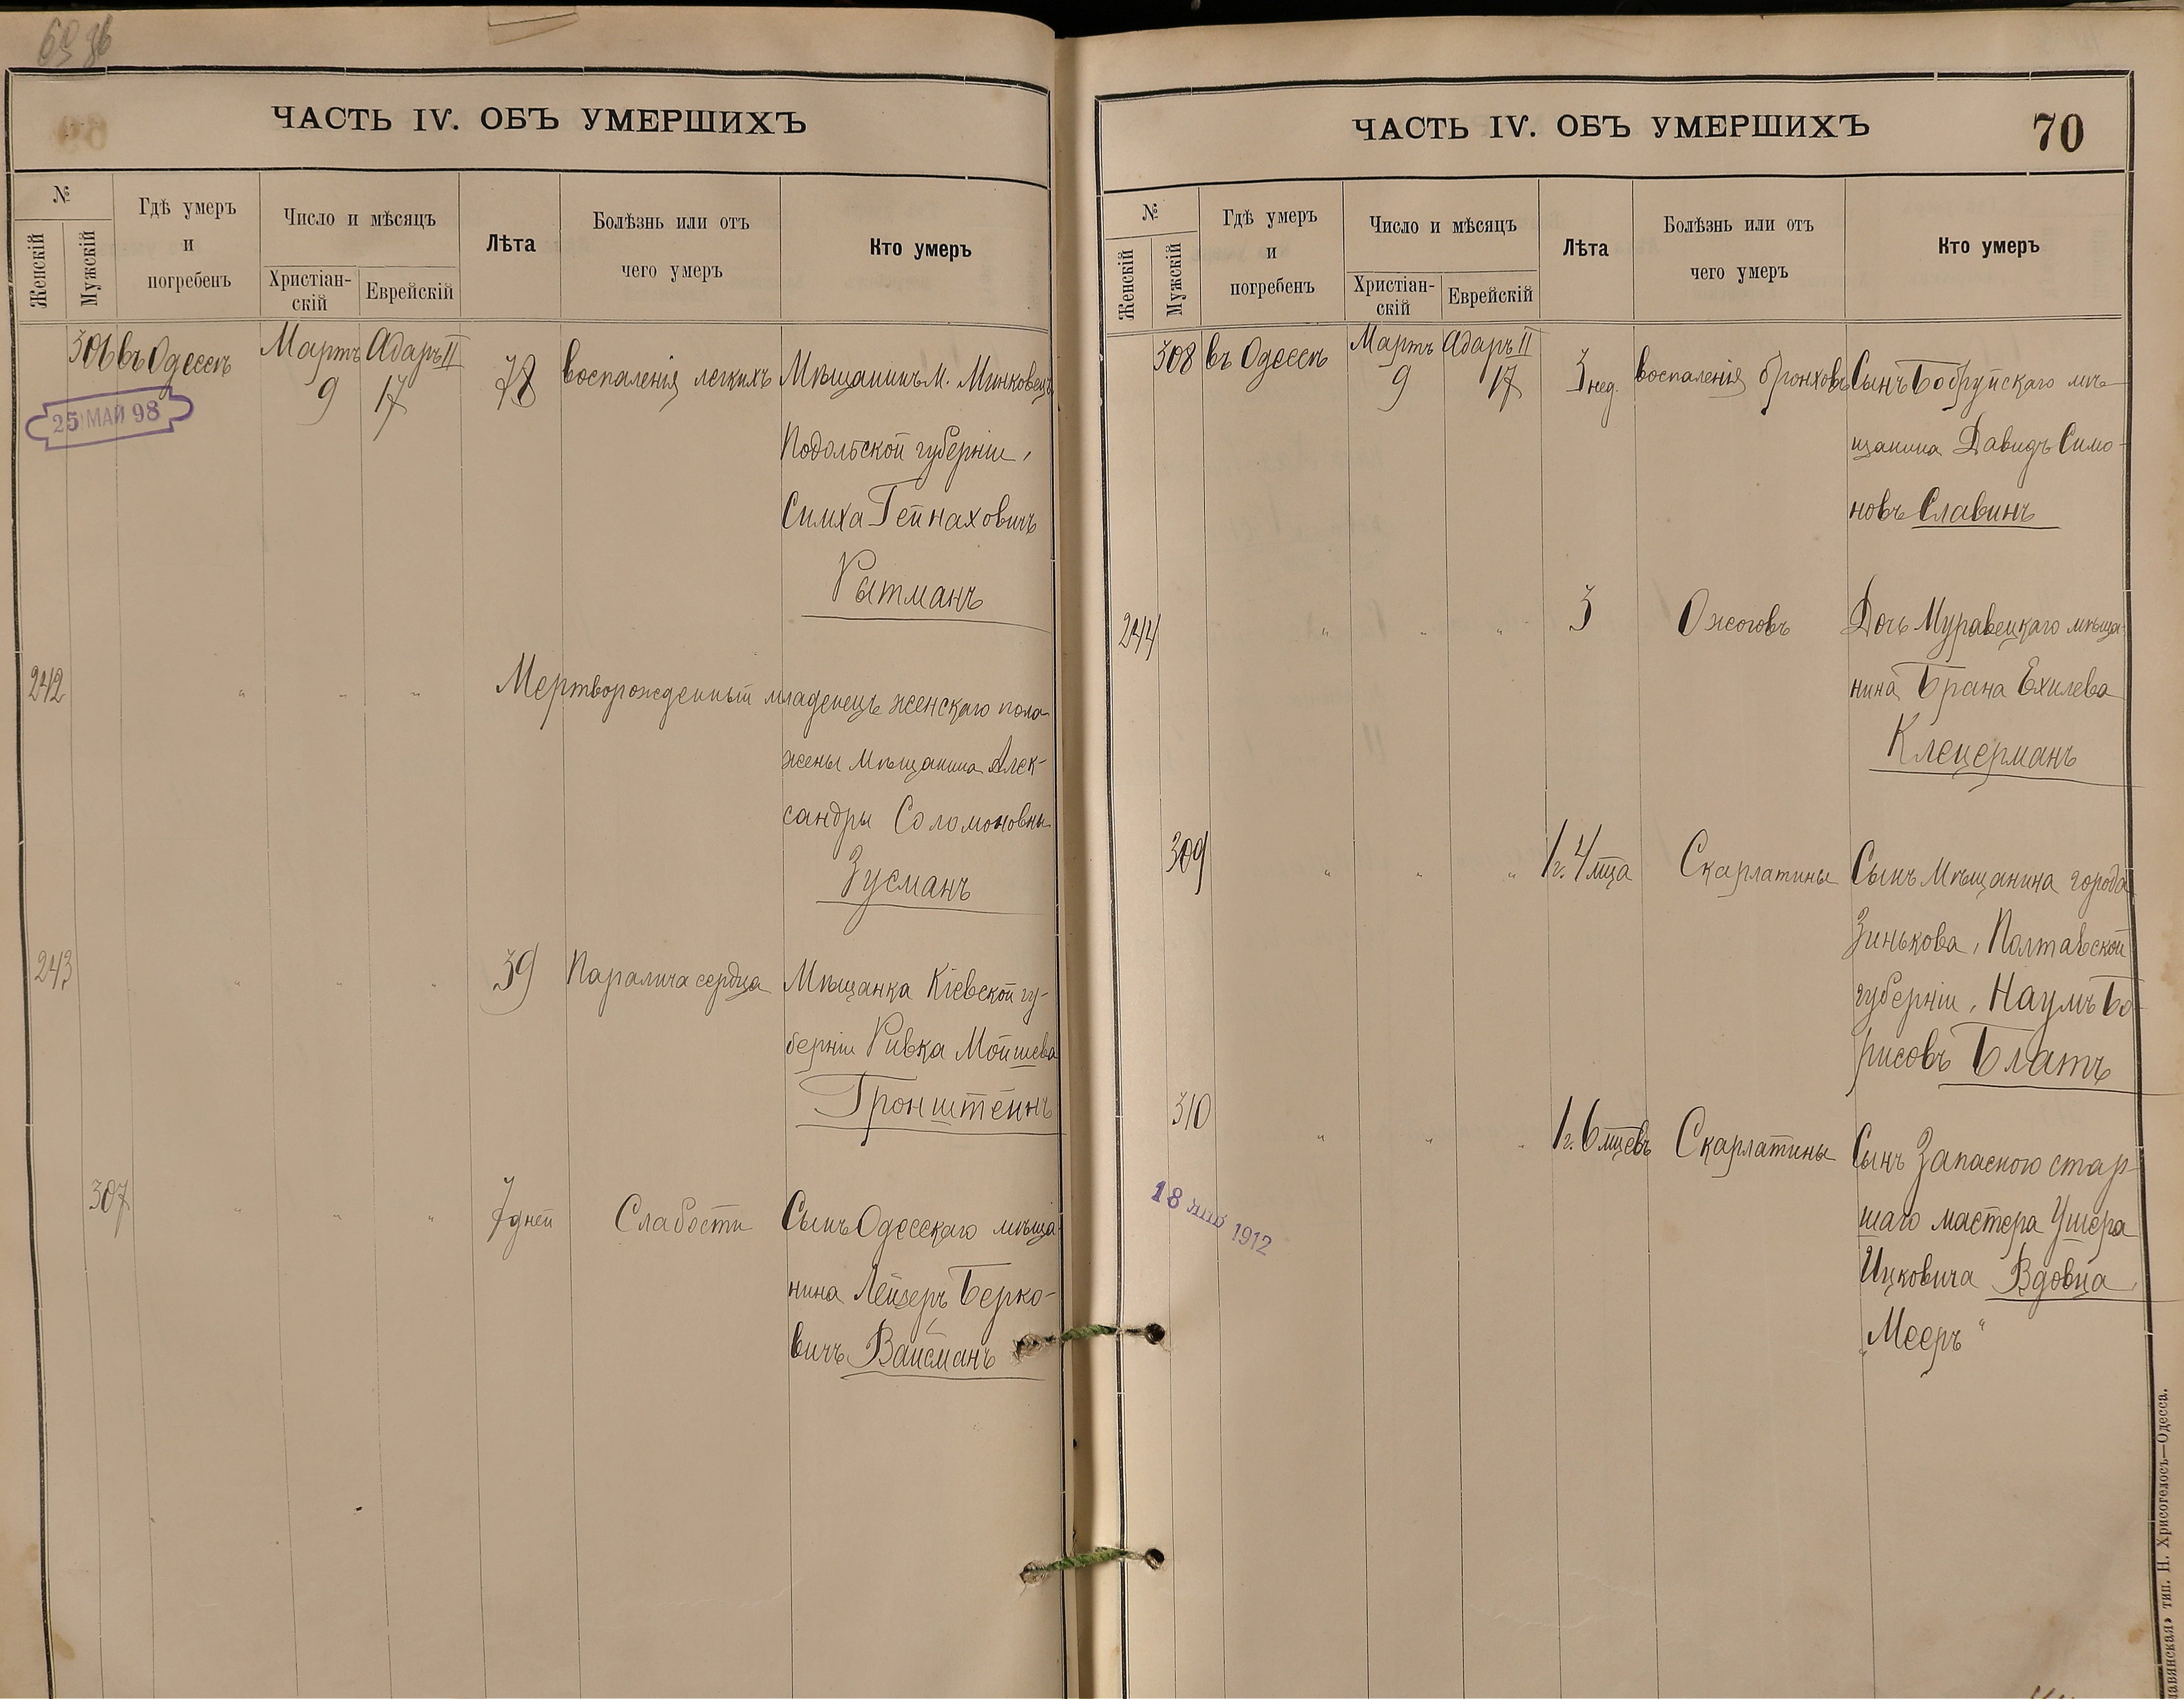 ЧАСТЬ IV. ОБЪ УМЕРШИХЪ
№
Женскій
Мужскій
Гдѣ умеръ
и
погребенъ
Число и мѣсяцъ
Христіан-
скій
Еврейскій
Лѣта
Болѣзнь или отъ
чего умеръ
Кто умеръ
306 въ Одессѣ Мартъ 9 Адаръ II 17 78 воспаленія легкихъ Мѣщанинъ м. Минковецъ
25 МАЙ 98
Подольской губерніи,
Симха Гейнаховичъ
Рытманъ
242 " " " Мертворожденный младенецъ женскаго пола
жены мѣщанина Алек-
сандры Соломоновны
Зусманъ
243 " " " 39 Паралича сердца Мѣщанка Кіевской гу-
берніи Ривка Мойшева
Гронштейнъ
307 " " " 7 дней Слабости Сынъ Одесскаго мѣща-
нина Лейзеръ Берко-
вичъ Вайсманъ
ЧАСТЬ IV. ОБЪ УМЕРШИХЪ
70
№
Женскій
Мужскій
Гдѣ умеръ
и
погребенъ
Число и мѣсяцъ
Христіан-
скій
Еврейскій
Лѣта
Болѣзнь или отъ
чего умеръ
Кто умеръ
308 въ Одессѣ Мартъ 9 Адаръ II 17 3 нед. воспаленія бронховъ Сынъ Бобруйскаго мѣ-
щанина Давидъ Симо-
новъ Славинъ
244 " " " 3 Ожоговъ Дочь Муравецкаго мѣща-
нина Брана Ехилева
Клецерманъ
309 " " " 1 г. 4 мца Скарлатины Сынъ мѣщанина города
Зинькова, Полтавской
губерніи, Наумъ Бо-
рисовъ Блатъ
310 " " " 1 г. 6 мцевъ Скарлатины Сынъ Запасного стар-
шаго мастера Ушера
Ицковича Вдовца
"Мееръ"
18 ЯНВ 1912
тип. Н. Хрисогелосъ—Одесса.